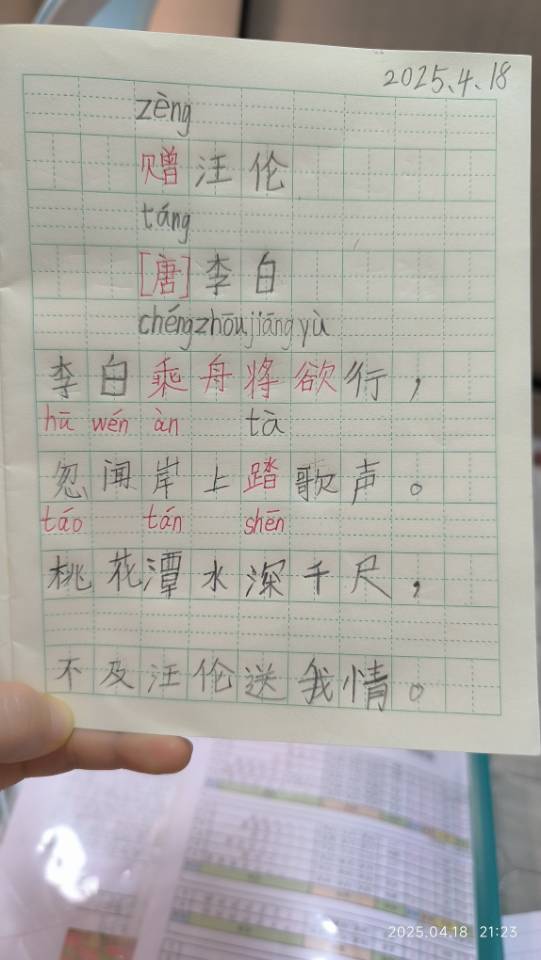 2025.4.18
zèng
赠汪伦
táng
[唐]李白
chéngzhōujiāngyù
李白乘舟将欲行，
hū wén àn tà
忽闻岸上踏歌声。
táo tán shēn
桃花潭水深千尺，
不及汪伦送我情。
2025.04.18 21:23